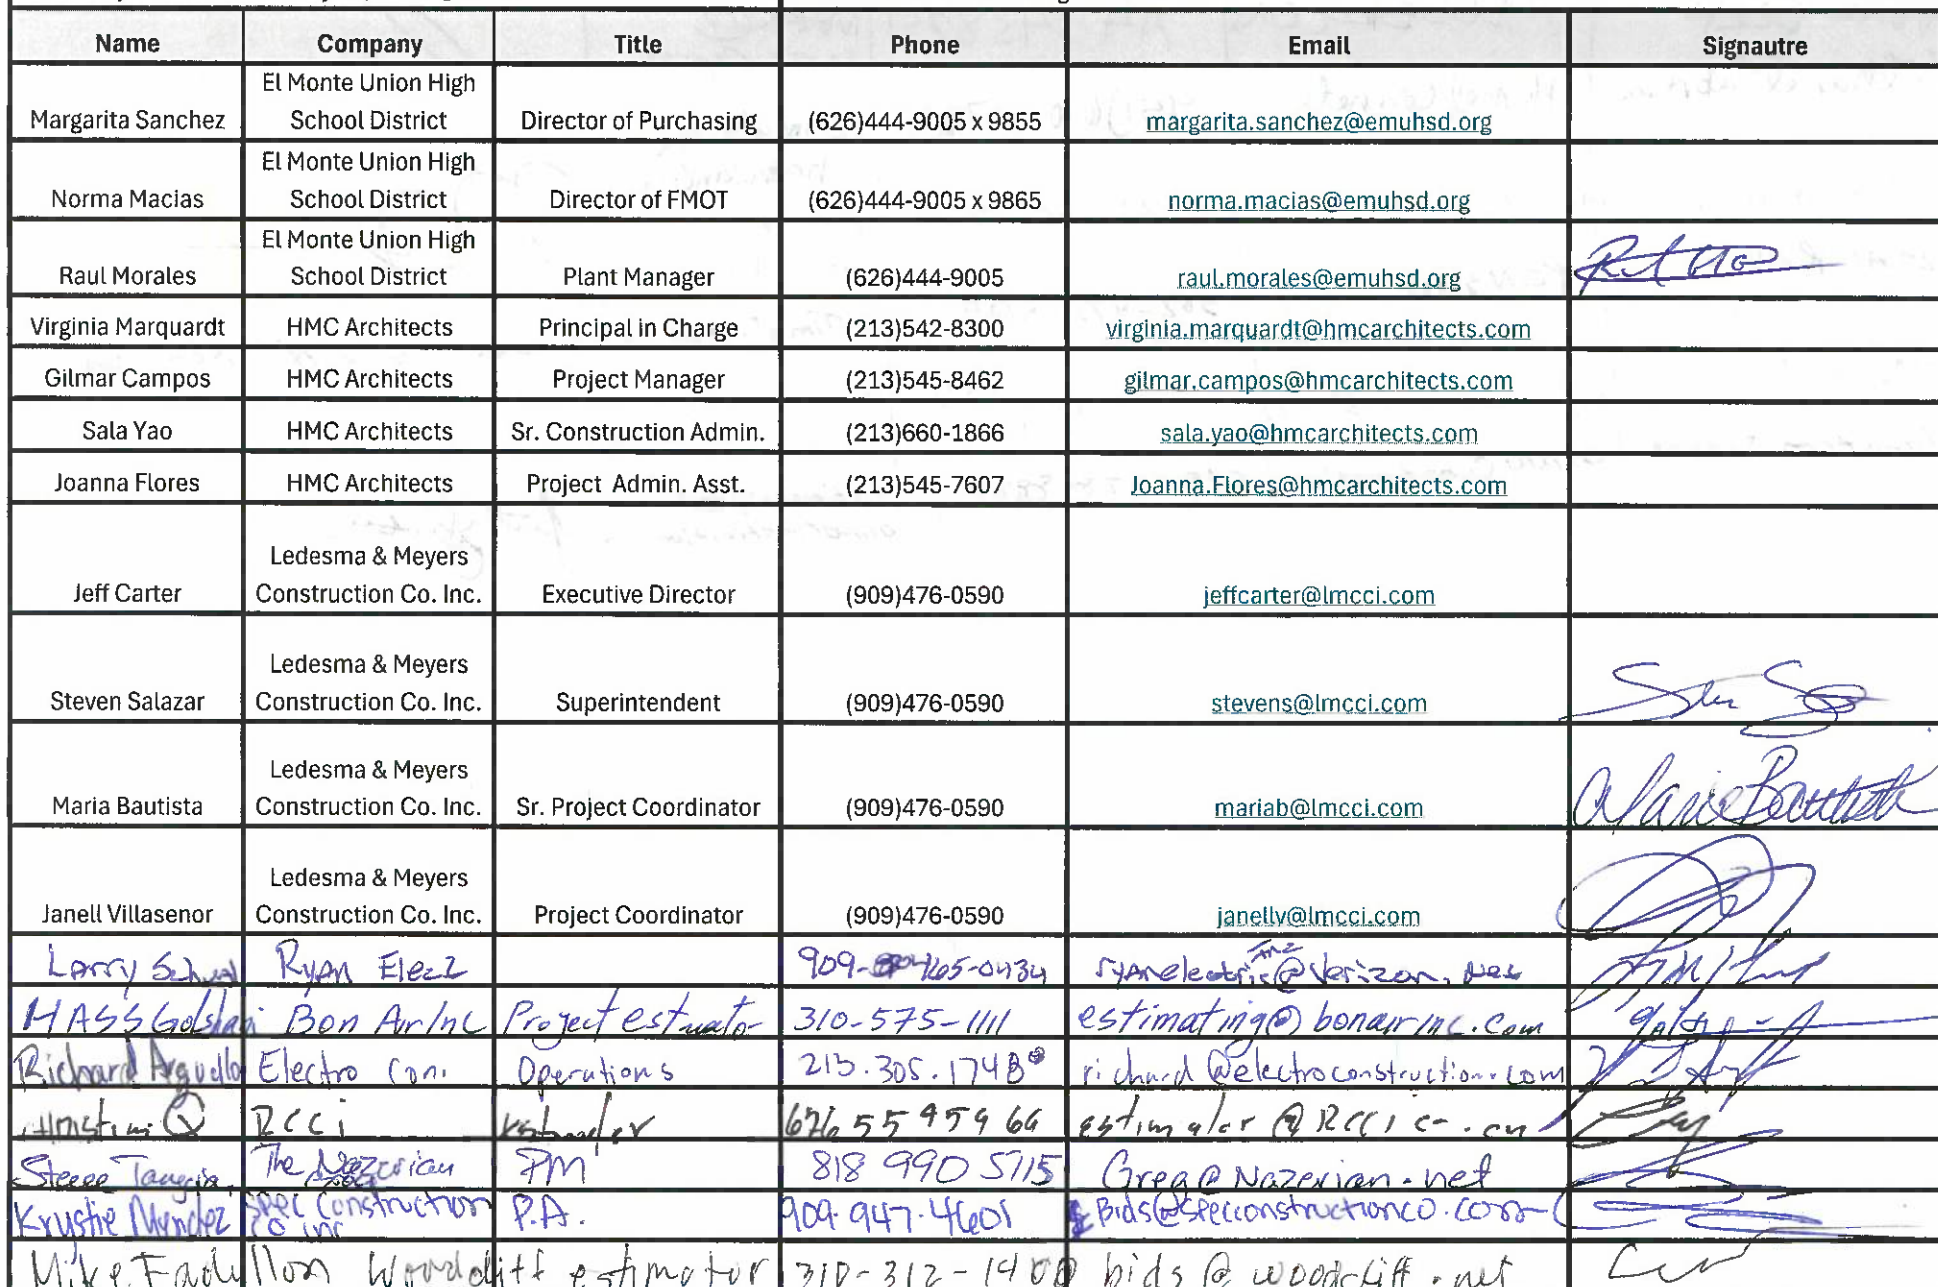 Name Company Title Phone Email Signautre
Margarita Sanchez El Monte Union High School District Director of Purchasing (626)444-9005 x 9855 margarita.sanchez@emuhsd.org
Norma Macias El Monte Union High School District Director of FMOT (626)444-9005 x 9865 norma.macias@emuhsd.org
Raul Morales El Monte Union High School District Plant Manager (626)444-9005 raul.morales@emuhsd.org
Virginia Marquardt HMC Architects Principal in Charge (213)542-8300 virginia.marquardt@hmcarchitects.com
Gilmar Campos HMC Architects Project Manager (213)545-8462 gilmar.campos@hmcarchitects.com
Sala Yao HMC Architects Sr. Construction Admin. (213)660-1866 sala.yao@hmcarchitects.com
Joanna Flores HMC Architects Project Admin. Asst. (213)545-7607 Joanna.Flores@hmcarchitects.com
Jeff Carter Ledesma & Meyers Construction Co. Inc. Executive Director (909)476-0590 jeffcarter@lmcci.com
Steven Salazar Ledesma & Meyers Construction Co. Inc. Superintendent (909)476-0590 stevens@lmcci.com
Maria Bautista Ledesma & Meyers Construction Co. Inc. Sr. Project Coordinator (909)476-0590 mariab@lmcci.com Maria Bautista
Janell Villasenor Ledesma & Meyers Construction Co. Inc. Project Coordinator (909)476-0590 janellv@lmcci.com
Larry Ryan Elect 909-
HASS Golshani Bon Air Inc Project estimator 310-575-1111 estimating@bonairinc.com
Richard Arguello Electro Con. Operations 213.305.1748 richard@electroconstruction.com
Q RCCi 626 5595966
Steve The Nazerian PM 818 990 5115 Greg@Nazerian.net
Krystie Spec Construction Co inc P.A. 909.947.4601 Bids@specconstructionco.com
Mike Woodcliff estimator 310-312-1400 bids@woodcliff.net